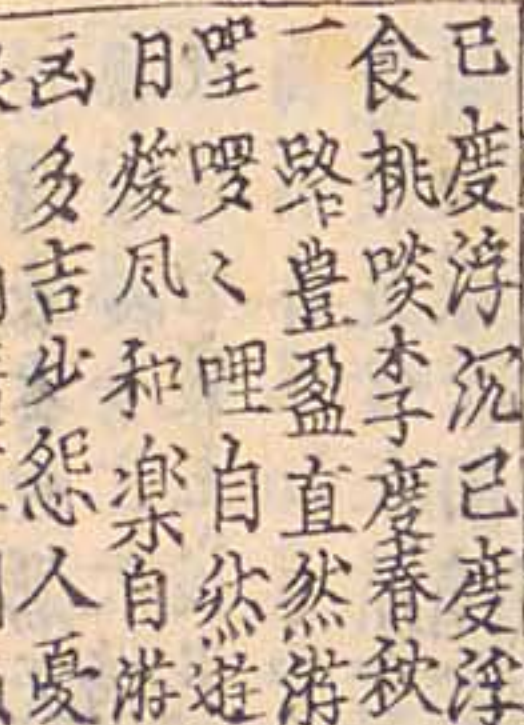 己度浮沉己度浮
食桃啖李度春秋
一路豊盈直然游
啰〻哩自然遊
日煖凨和楽自游
凶多吉少怨人憂